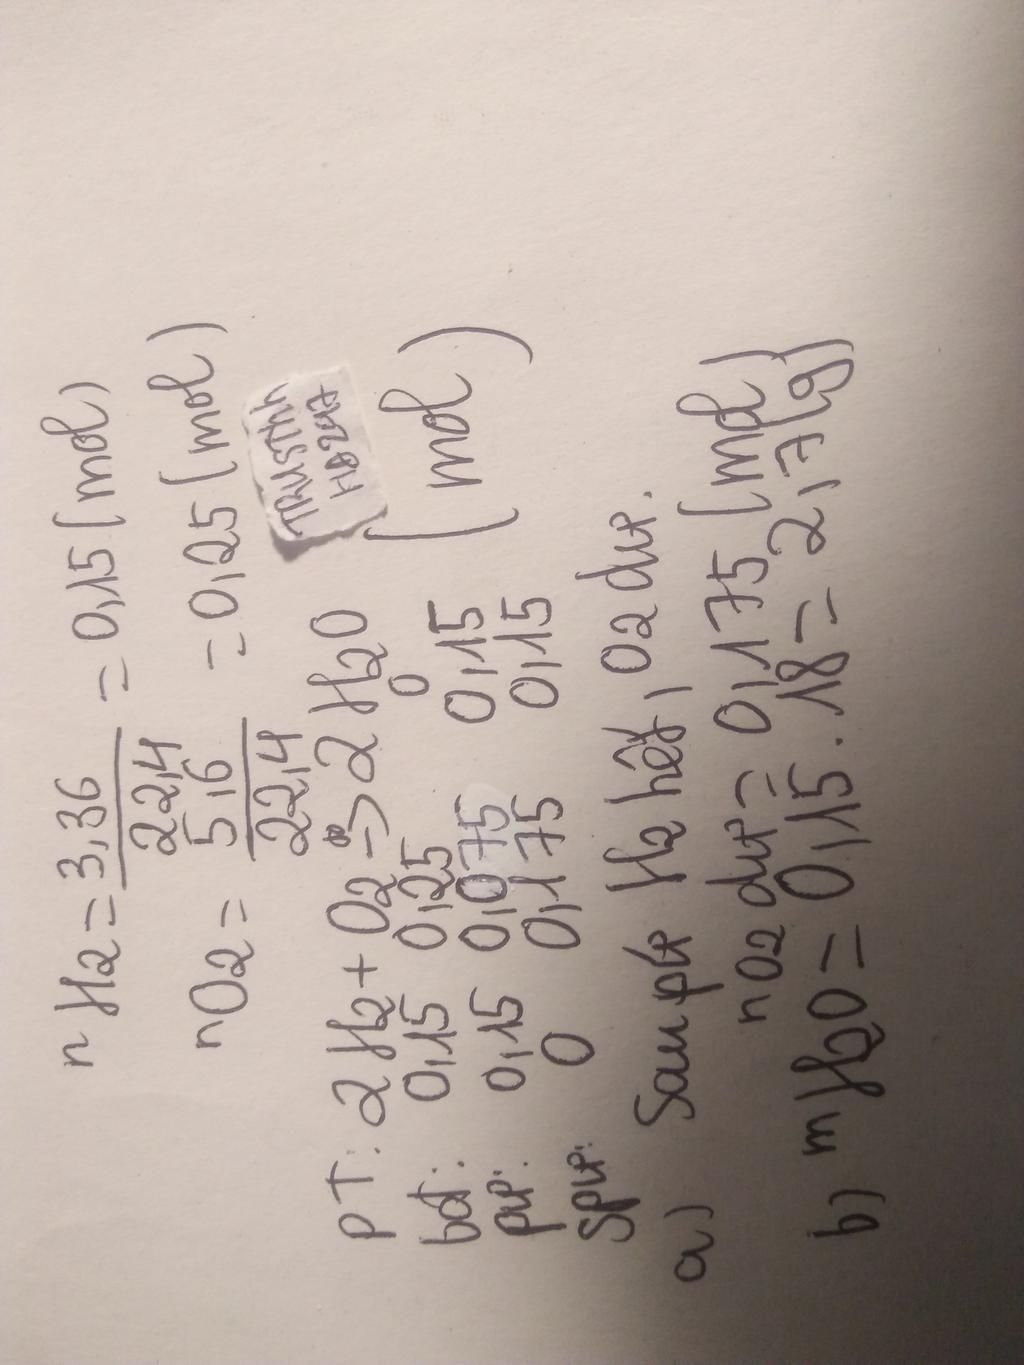 nH2 = 3,36 / 22,4 = 0,15 (mol)
nO2 = 5,6 / 22,4 = 0,25 (mol)
TRUSThh
HD2017
PT: 2H2 + O2 -> 2H2O
bđ: 0,15 0,25 0 (mol)
pư: 0,15 0,075 0,15
spư: 0 0,175 0,15
a) Sau pư H2 hết, O2 dư.
nO2 dư = 0,175 (mol)
b) mH2O = 0,15 . 18 = 2,7 (g)